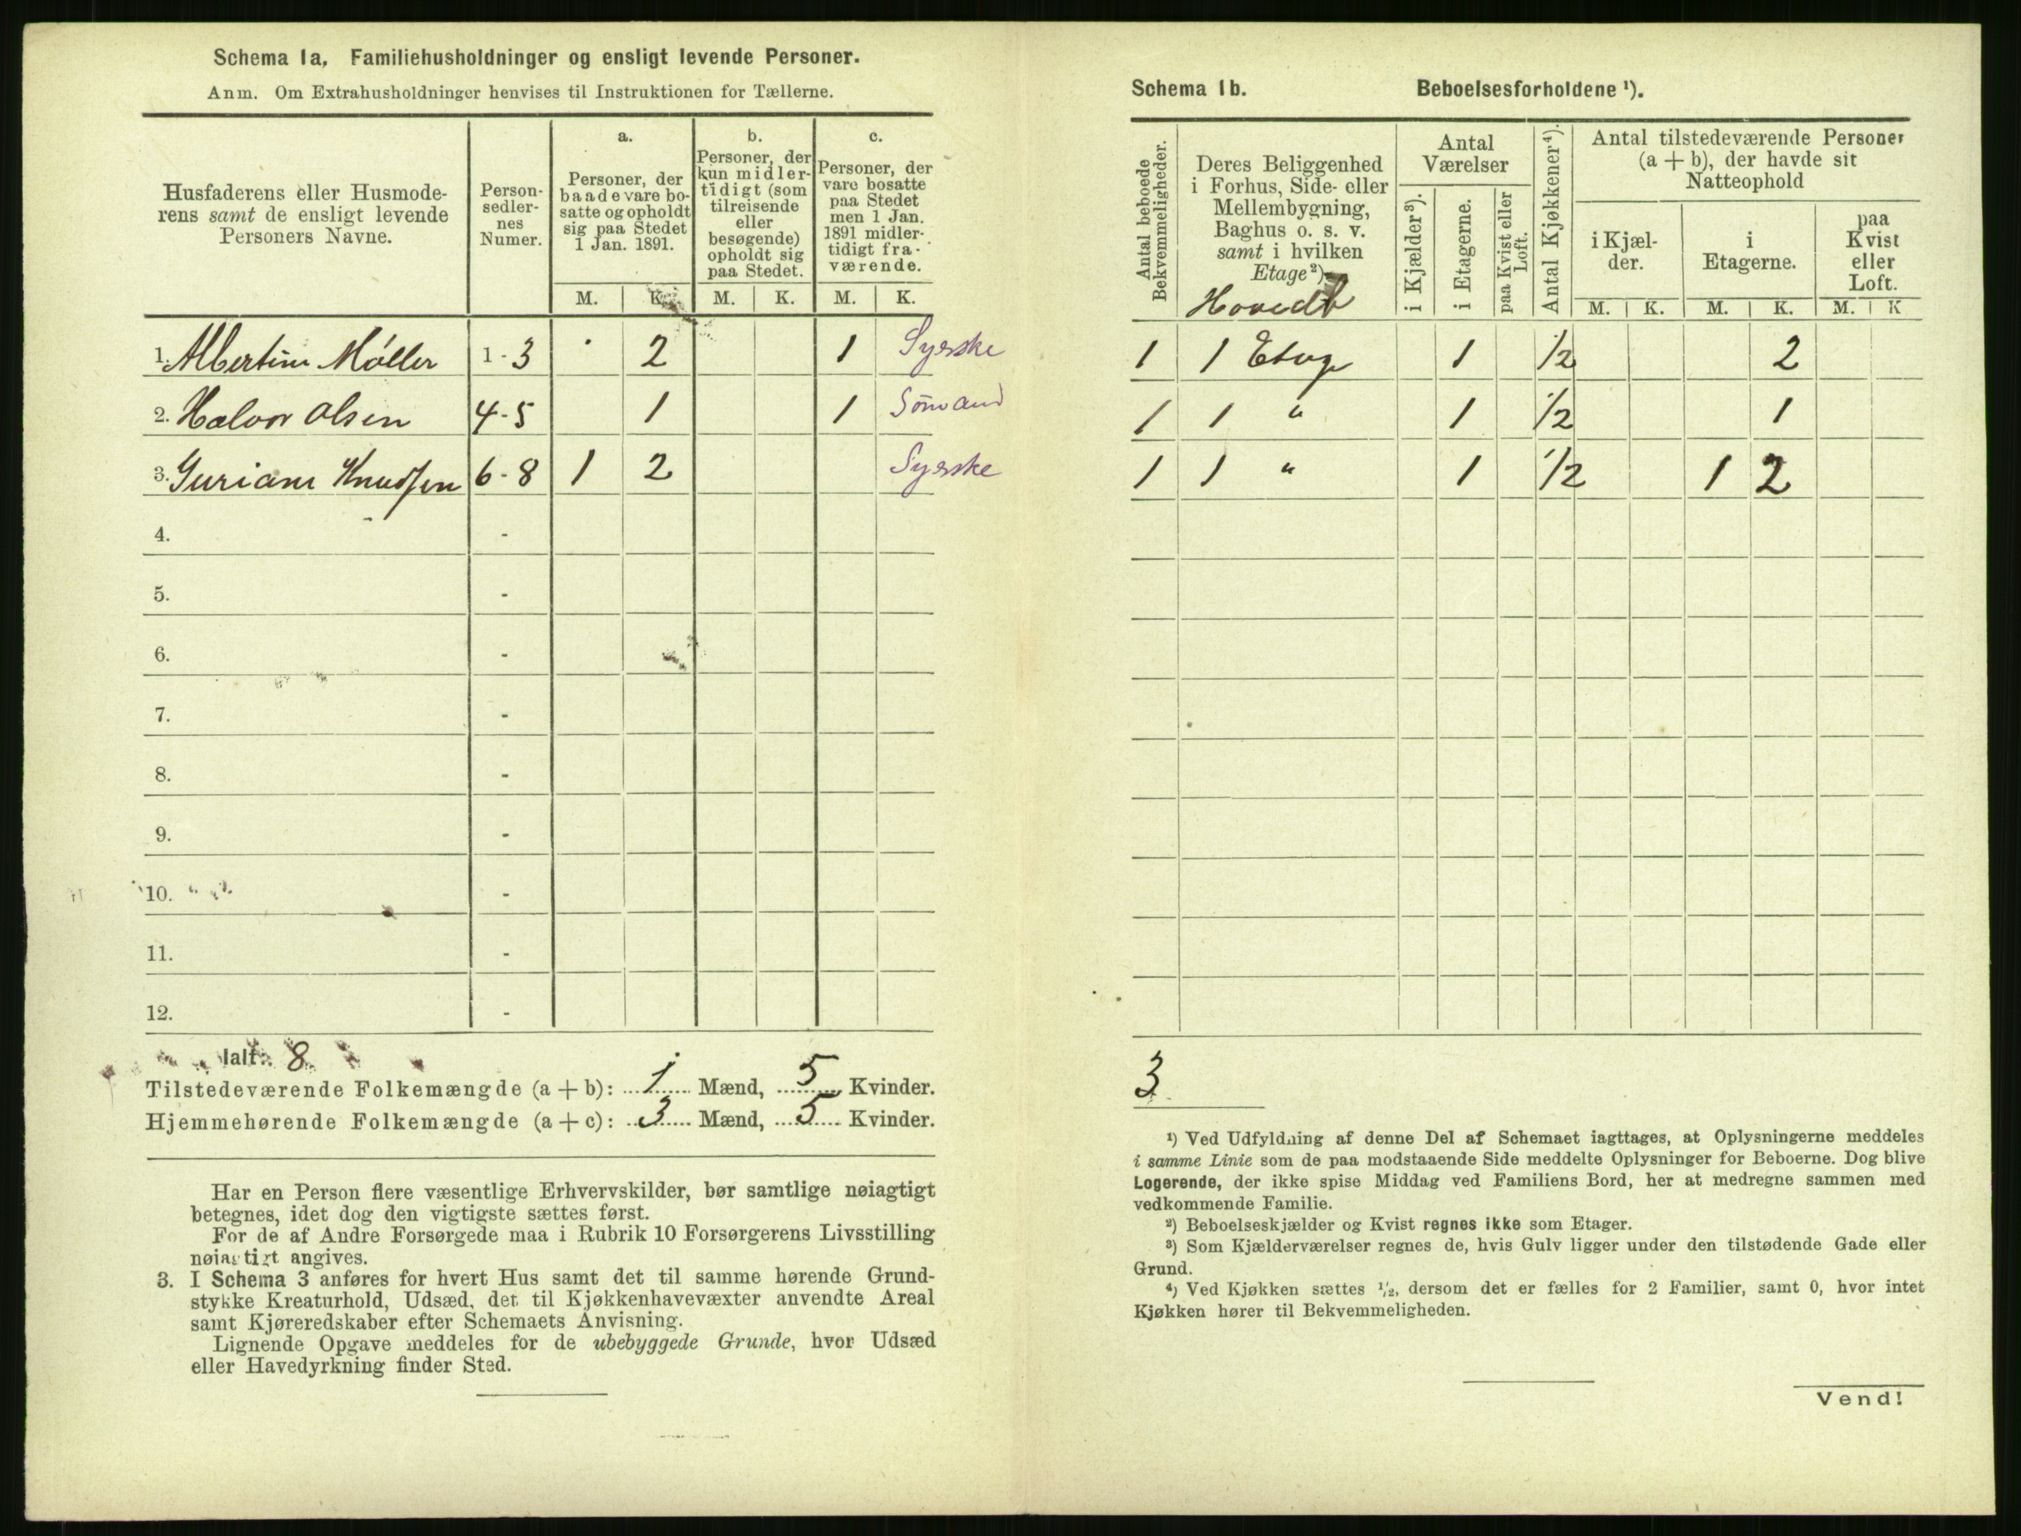 Schema 1a. Familiehusholdninger og ensligt levende Personer.
Anm. Om Extrahusholdninger henvises til Instruktionen for Tællerne.
Husfaderens eller Husmode-
rens samt de ensligt levende
Personers Navne.
Person-
sedler-
nes
Numer.
a.
Personer, der
baade vare bo-
satte og opholdt
sig paa Stedet
1 Jan. 1891.
b.
Personer, der
kun midler-
tidigt (som
tilreisende
eller
besøgende)
opholdt sig
paa Stedet.
c.
Personer, der
vare bosatte
paa Stedet
men 1 Jan.
1891 midler-
tidigt fra-
værende.
M. K. M. K. M. K.
1. Albertine Møller 1 - 3 2 1 Syerske
2. Halvor Olsen 4 - 5 1 1 Sømand
3. Guriane Knudsen 6 - 8 1 2 Syerske
4. -
5. -
6. -
7. -
8. -
9. -
10. -
11. -
12. -
Ialt: 8
Tilstedeværende Folkemængde (a + b): 1 Mænd, 5 Kvinder.
Hjemmehørende Folkemængde (a + c): 3 Mænd, 5 Kvinder.
Har en Person flere væsentlige Erhvervskilder, bør samtlige nøiagtigt
betegnes, idet dog den vigtigste sættes først.
For de af Andre Forsørgede maa i Rubrik 10 Forsørgerens Livsstilling
nøiagtigt angives.
3. I Schema 3 anføres for hvert Hus samt det til samme hørende Grund-
stykke Kreaturhold, Udsæd, det til Kjøkkenhavevæxter anvendte Areal
samt Kjøreredskaber efter Schemaets Anvisning.
Lignende Opgave meddeles for de ubebyggede Grunde, hvor Udsæd
eller Havedyrkning finder Sted.
Schema 1b. Beboelsesforholdene ¹).
Antal beboede
Bekvemmeligheder.
Deres Beliggenhed
i Forhus, Side- eller
Mellembygning,
Baghus o. s. v.
samt i hvilken
Etage ²)
Hovedb
Antal
Værelser
i Kjælder ³).
i Etagerne.
paa Kvist eller
Loft.
Antal Kjøkkener ⁴).
Antal tilstedeværende Personer
(a + b), der havde sit
Natteophold
i Kjæl-
der.
i
Etagerne.
paa
Kvist
eller
Loft.
M. K. M. K. M. K
1 1 Etage 1 1/2 2
1 1 " 1 1/2 1
1 1 " 1 1/2 1 2
3
¹) Ved Udfyldning af denne Del af Schemaet iagttages, at Oplysningerne meddeles
i samme Linie som de paa modstaaende Side meddelte Oplysninger for Beboerne. Dog blive
Logerende, der ikke spise Middag ved Familiens Bord, her at medregne sammen med
vedkommende Familie.
²) Beboelseskjælder og Kvist regnes ikke som Etager.
³) Som Kjælderværelser regnes de, hvis Gulv ligger under den tilstødende Gade eller
Grund.
⁴) Ved Kjøkken sættes 1/2, dersom det er fælles for 2 Familier, samt 0, hvor intet
Kjøkken hører til Bekvemmeligheden.
Vend!